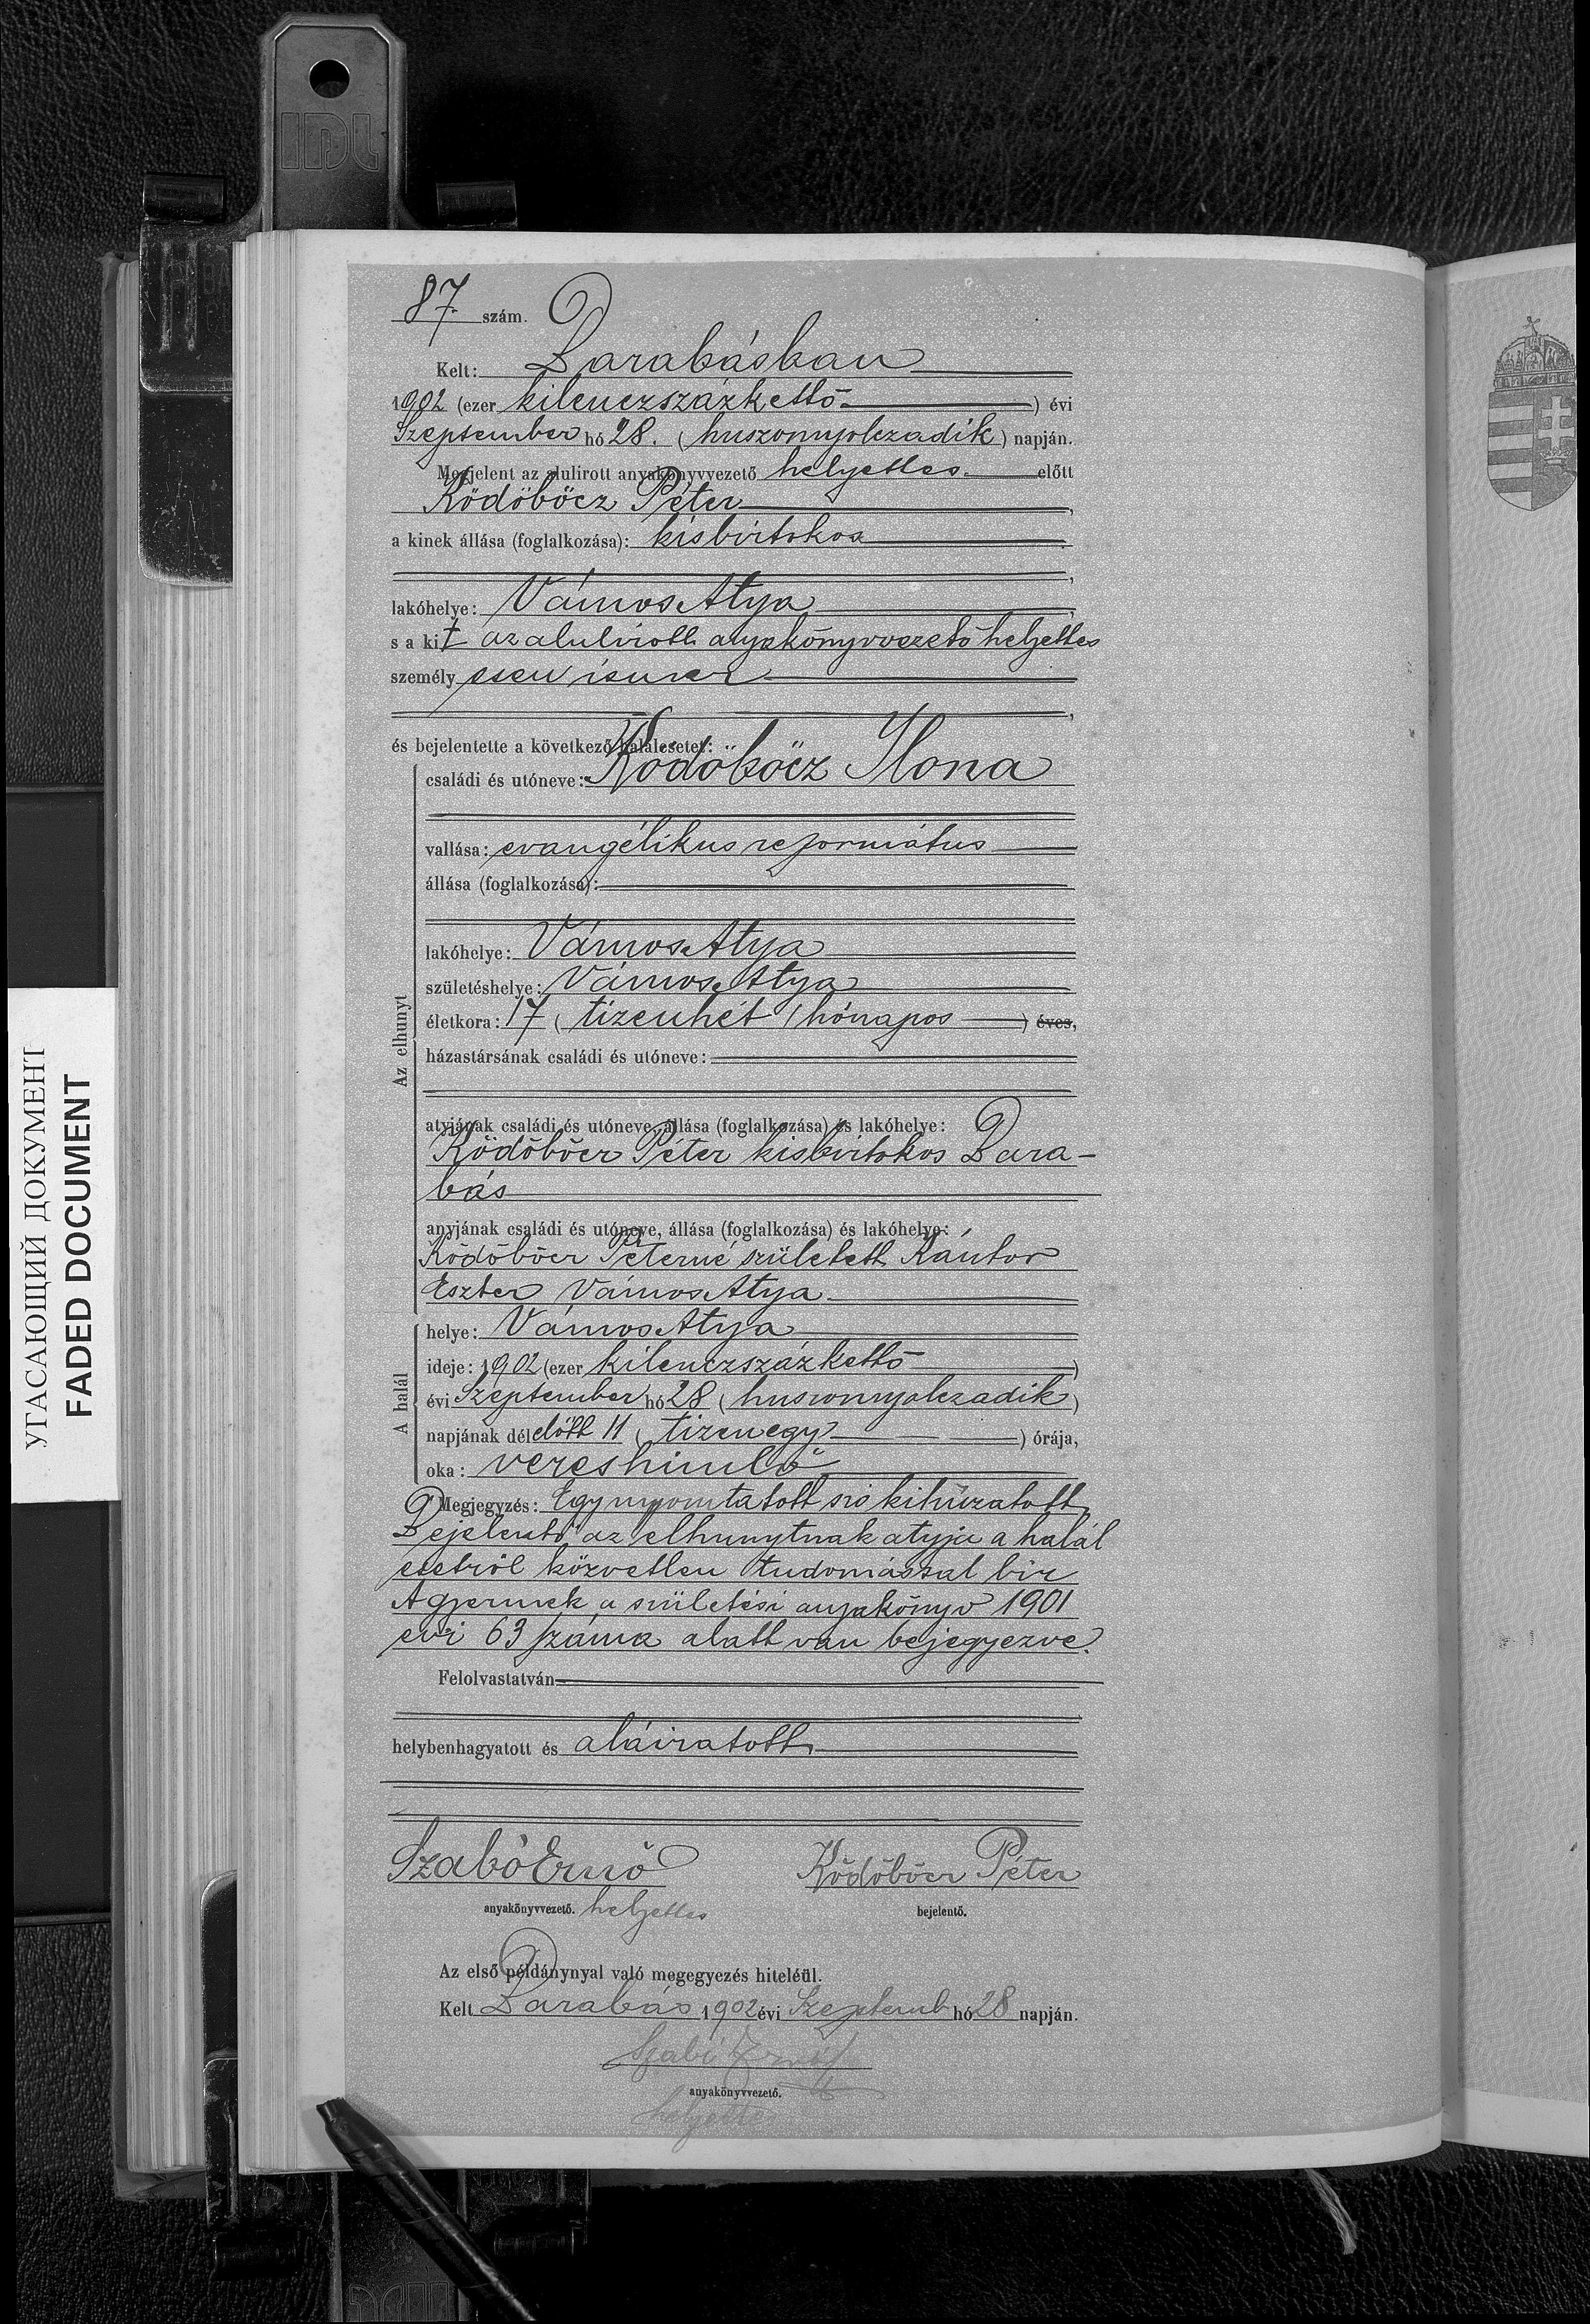 87. szám.
Kelt: Barabásban
1902 (ezer kilenczszázkettő) évi
Szeptember hó 28. (huszonnyolczadik) napján.
Megjelent az alulirott anyakönyvvezető helyettes előtt
Ködöböcz Péter,
a kinek állása (foglalkozása): kisbirtokos
lakóhelye: Vámos Atya,
s a kit az alulirott anyakönyvvezető helyettes
személyesen ismer
és bejelentette a következő halálesetet:
családi és utóneve: Ködöböcz Ilona
vallása: evangélikus református
állása (foglalkozása):
lakóhelye: Vámos Atya
születéshelye: Vámos Atya
életkora: 17 (tizenhét) hónapos ) éves,
házastársának családi és utóneve:
atyjának családi és utóneve, állása (foglalkozása) és lakóhelye:
Ködöböcz Péter kisbirtokos Bara-
bás
anyjának családi és utóneve, állása (foglalkozása) és lakóhelye:
Ködöböcz Péterné született Kántor
Eszter Vámos Atya
Az elhunyt
helye: Vámos Atya
ideje: 1902 (ezer kilenczszázkettő)
évi Szeptember hó 28 (huszonnyolczadik)
napjának délelőtt 11 (tizenegy) órája,
oka: vereshimlő
A halál
Megjegyzés: Egy nyomtatott szó kihúzatott
Bejelentő az elhunytnak atyja a halál
esetről közvetlen tudomással bir
A gyermek a születési anyakönyv 1901
evi 63 száma alatt van bejegyezve.
Felolvastatván
helybenhagyatott és aláiratott
Szabó Ernő Ködöböcz Péter
anyakönyvvezető. helyettes bejelentő.
Az első példánynyal való megegyezés hiteléül.
Kelt Barabás 1902 évi Szeptemb hó 28 napján.
Szabó Ernő
anyakönyvvezető.
helyettes
УГАСАЮЩИЙ ДОКУМЕНТ
FADED DOCUMENT
IDL